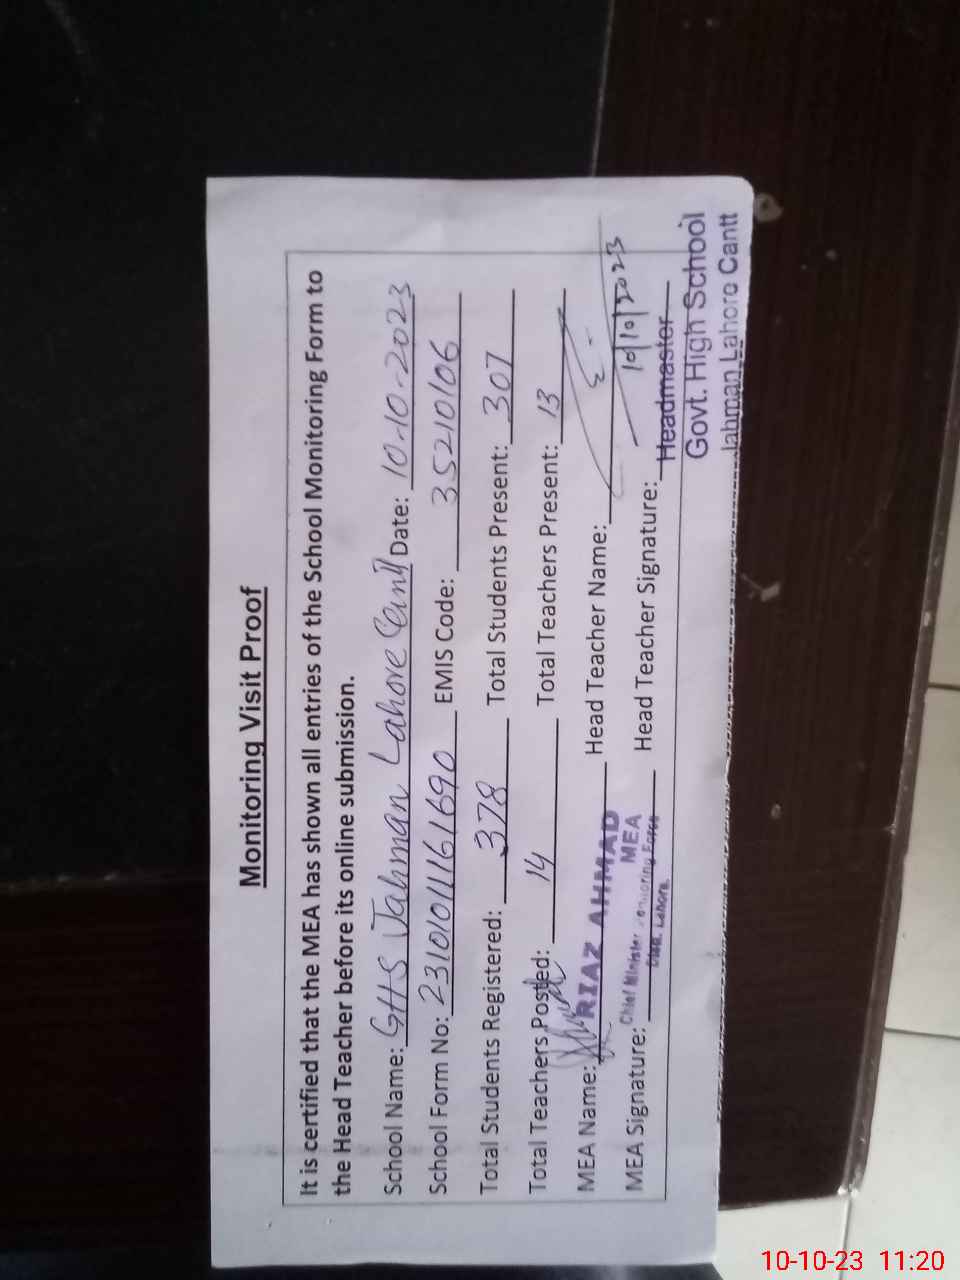 Monitoring Visit Proof
It is certified that the MEA has shown all entries of the School Monitoring Form to
the Head Teacher before its online submission.
School Name: GHS Jahman Lahore Cantt Date: 10-10-2023
School Form No: 2310101161690 EMIS Code: 35210106
Total Students Registered: 378 Total Students Present: 307
Total Teachers Posted: 14 Total Teachers Present: 13
MEA Name: RIAZ AHMAD Head Teacher Name:
MEA
Chief Minister Monitoring Force
Distt. Lahore
10/10/2023
MEA Signature: Head Teacher Signature:
Headmaster
Govt. High School
Jahman Lahore Cantt
10-10-23 11:20